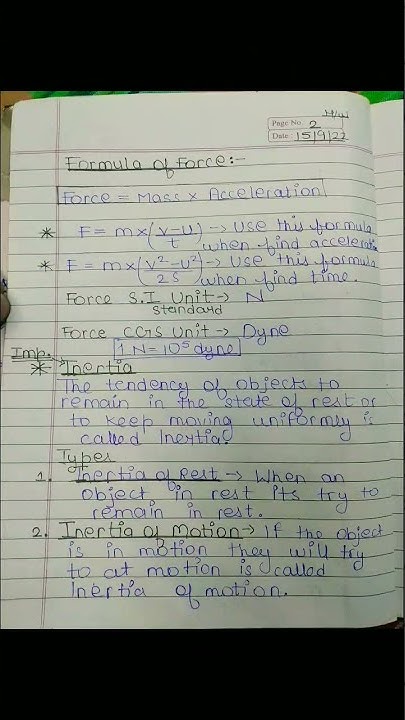 Page No. 2
Date: 15/9/22
Formula of Force:-
Force = Mass x Acceleration
* F = m x (v-u/t) -> Use this formula
when find acceleration
* F = m x (v²-u²/2s) -> Use this formula
when find time.
Force S.I Unit -> N
Standard
Force CGS Unit -> Dyne
1 N = 10⁵ dyne
Imp.
* Inertia
The tendency of objects to
remain in the state of rest or
to keep moving uniformly is
called Inertia.
Types
1. Inertia of Rest -> When an
object in rest its try to
remain in rest.
2. Inertia of Motion -> If the object
is in motion they will try
to at motion is called
Inertia of motion.